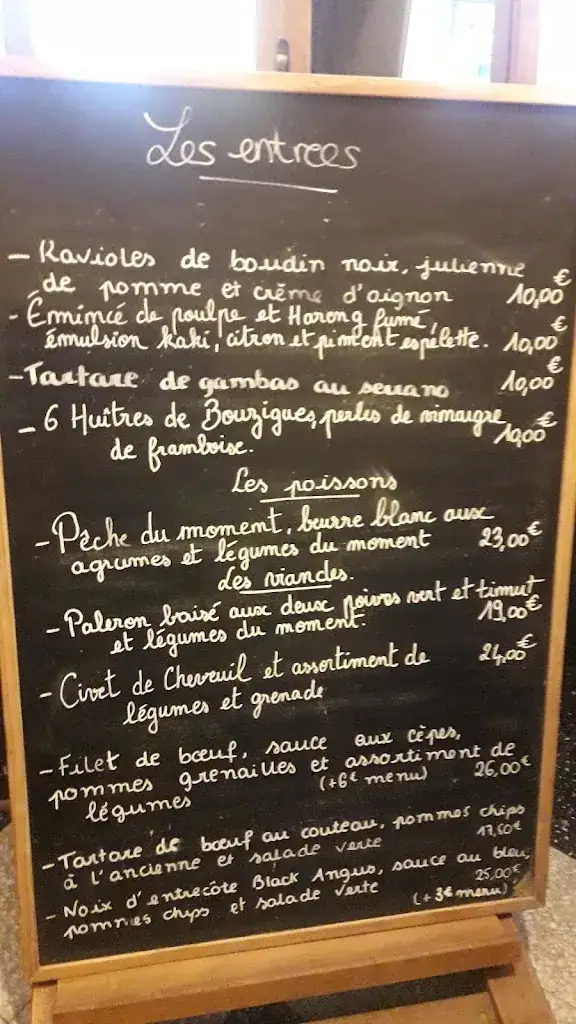 Les entrees
- Ravioles de boudin noir, julienne
de pomme et crème d'oignon 10,00€
- Émincé de poulpe et Hareng fumé,
émulsion kaki, citron et piment espelette. 10,00€
- Tartare de gambas au serrano 10,00€
- 6 Huîtres de Bouzigues, perles de vinaigre
de framboise. 10,00€
Les poissons
- Pêche du moment, beurre blanc aux
agrumes et légumes du moment 23,00€
Les viandes.
- Paleron braisé aux deux poivres vert et timut
et légumes du moment. 19,00€
- Civet de Chevreuil et assortiment de 24,00€
légumes et grenade
- Filet de bœuf, sauce aux cèpes,
pommes grenailles et assortiment de
légumes (+6€ menu) 26,00€
- Tartare de bœuf au couteau, pommes chips
à l'ancienne et salade verte 17,50€
- Noix d'entrecôte Black Angus, sauce au bleu,
pommes chips et salade verte 25,00€
(+3€ menu)